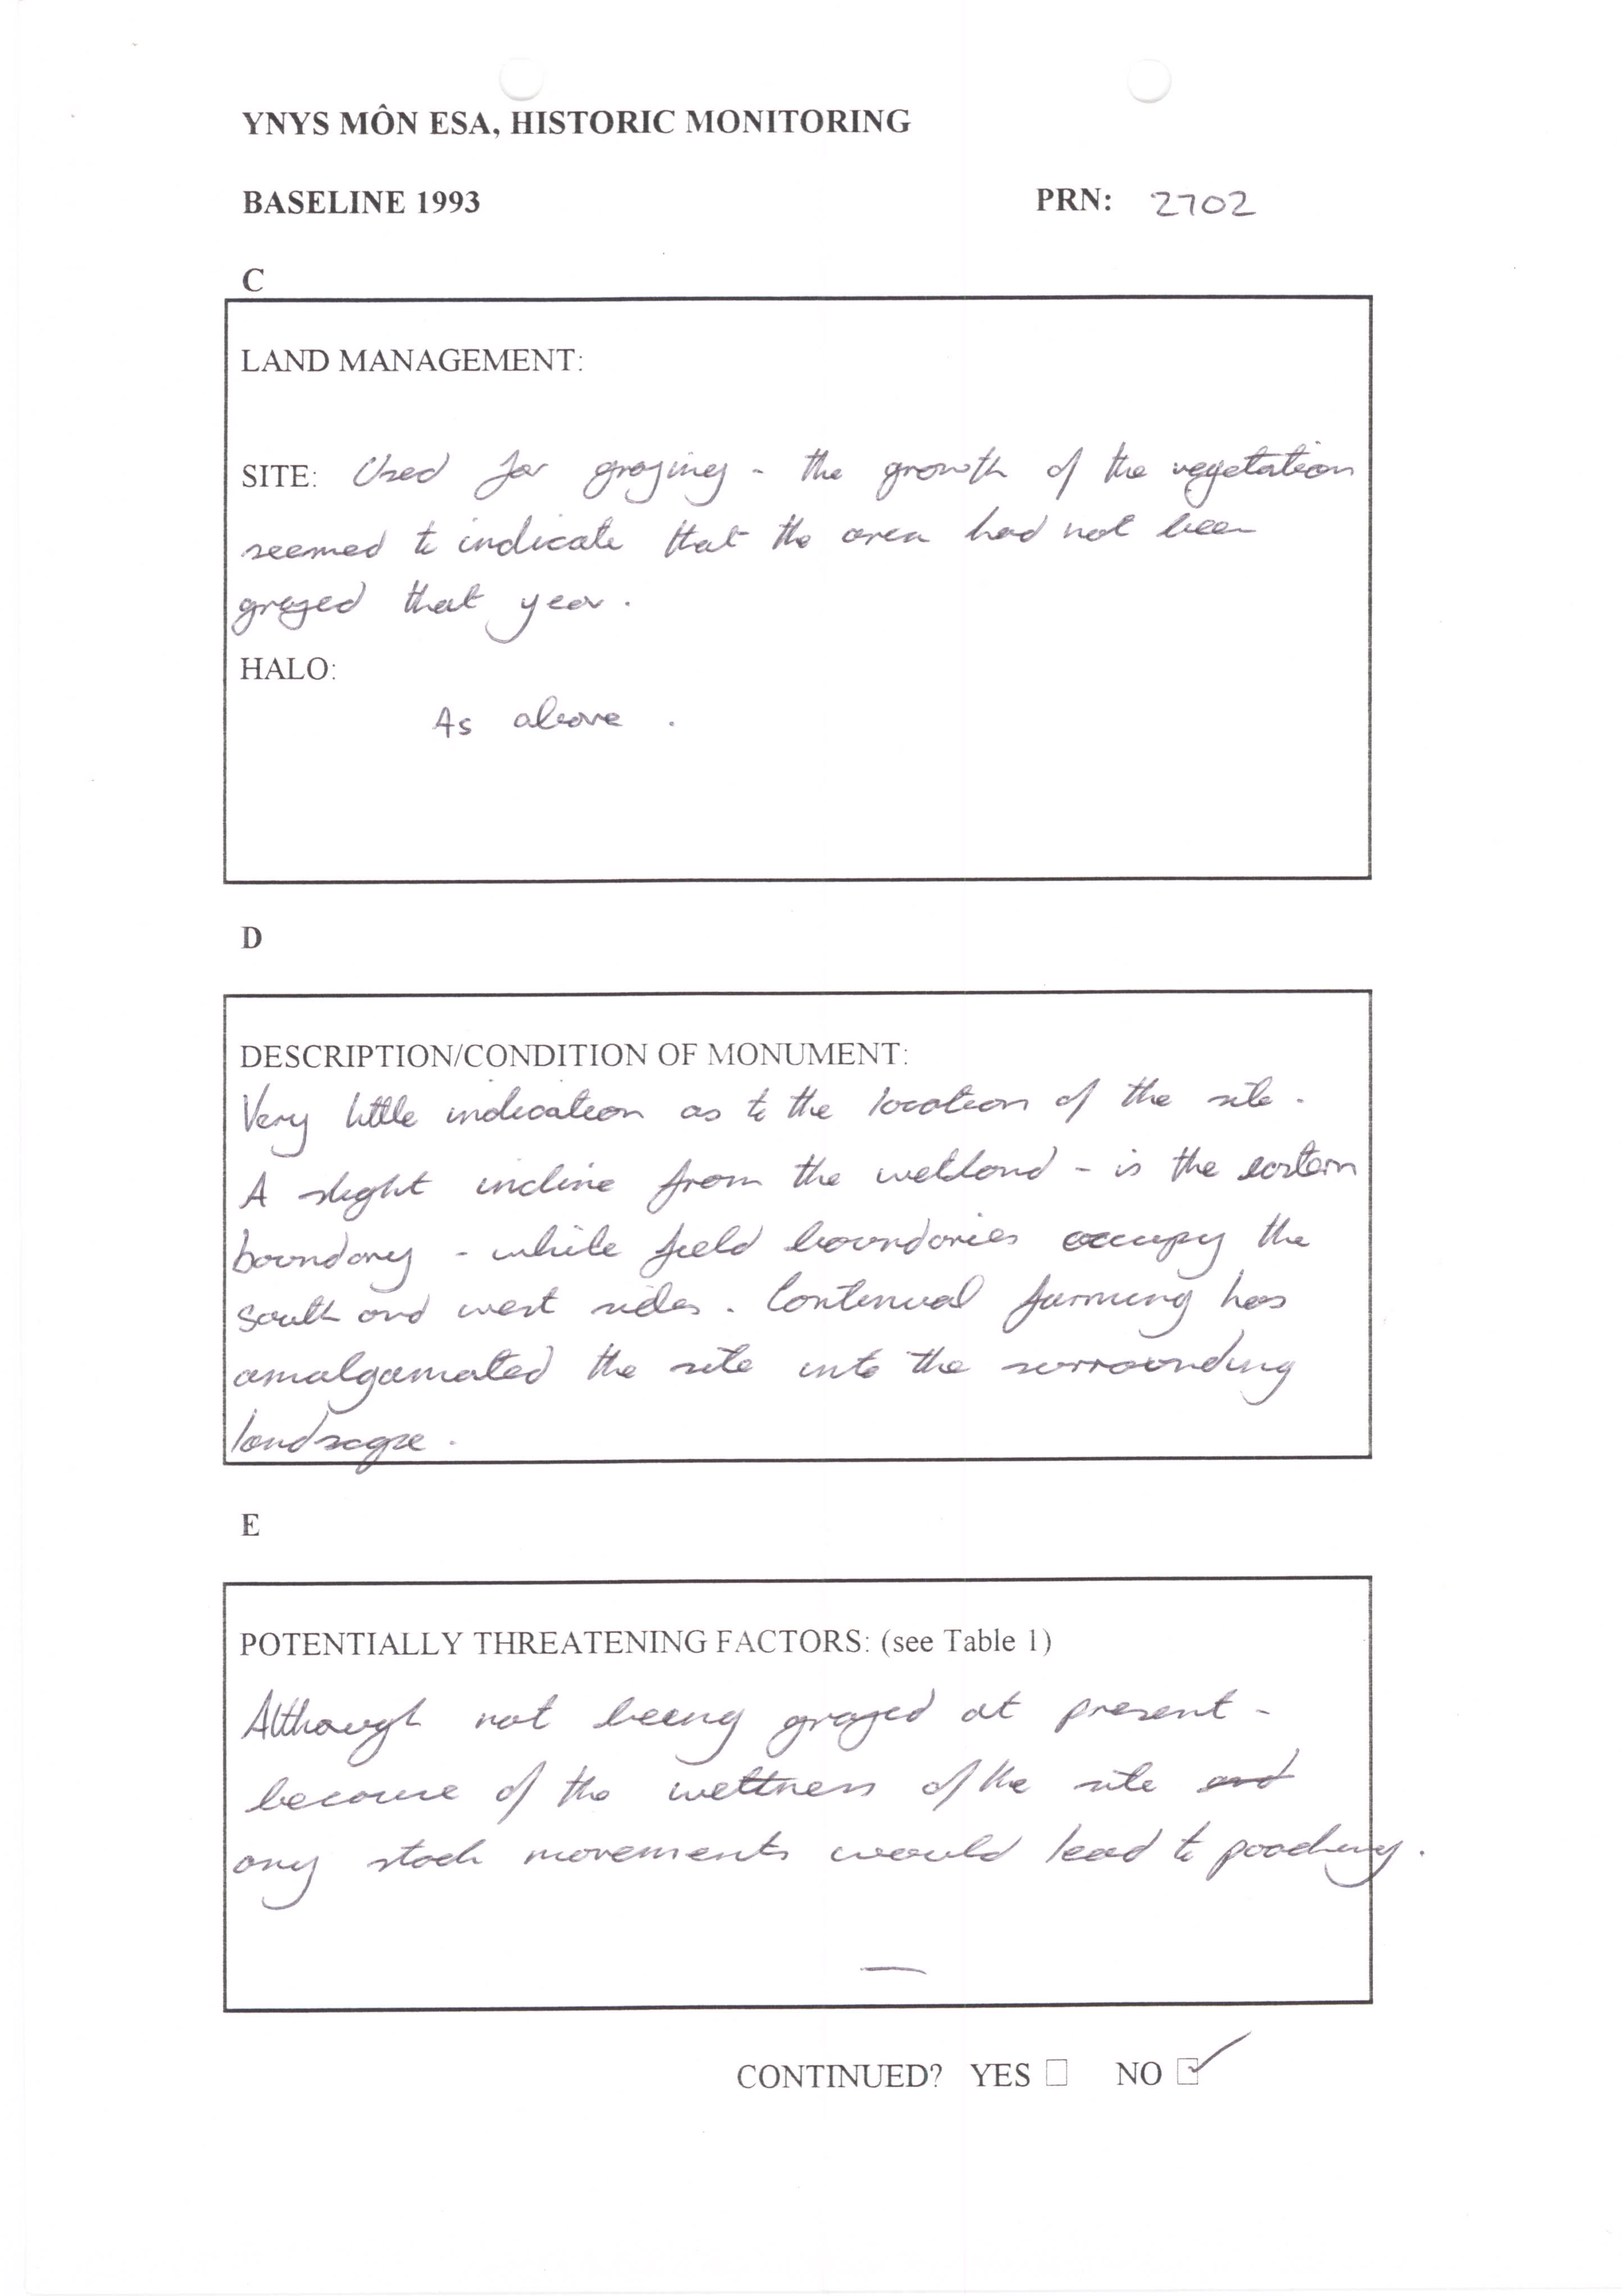 YNYS MÔN ESA, HISTORIC MONITORING
BASELINE 1993 PRN: 2702
C
LAND MANAGEMENT:
SITE: Used for grazing - the growth of the vegetation
seemed to indicate that the area had not been
grazed that year.
HALO:
As above.
D
DESCRIPTION/CONDITION OF MONUMENT:
Very little indication as to the location of the site.
A slight incline from the wetland - is the eastern
boundary - while field boundaries occupy the
south and west sides. Continual farming has
amalgamated the site into the surrounding
landscape.
E
POTENTIALLY THREATENING FACTORS: (see Table 1)
Although not being grazed at present -
because of the wettness of the site and
any stock movements would lead to poaching.
—
CONTINUED? YES ☐ NO ☑